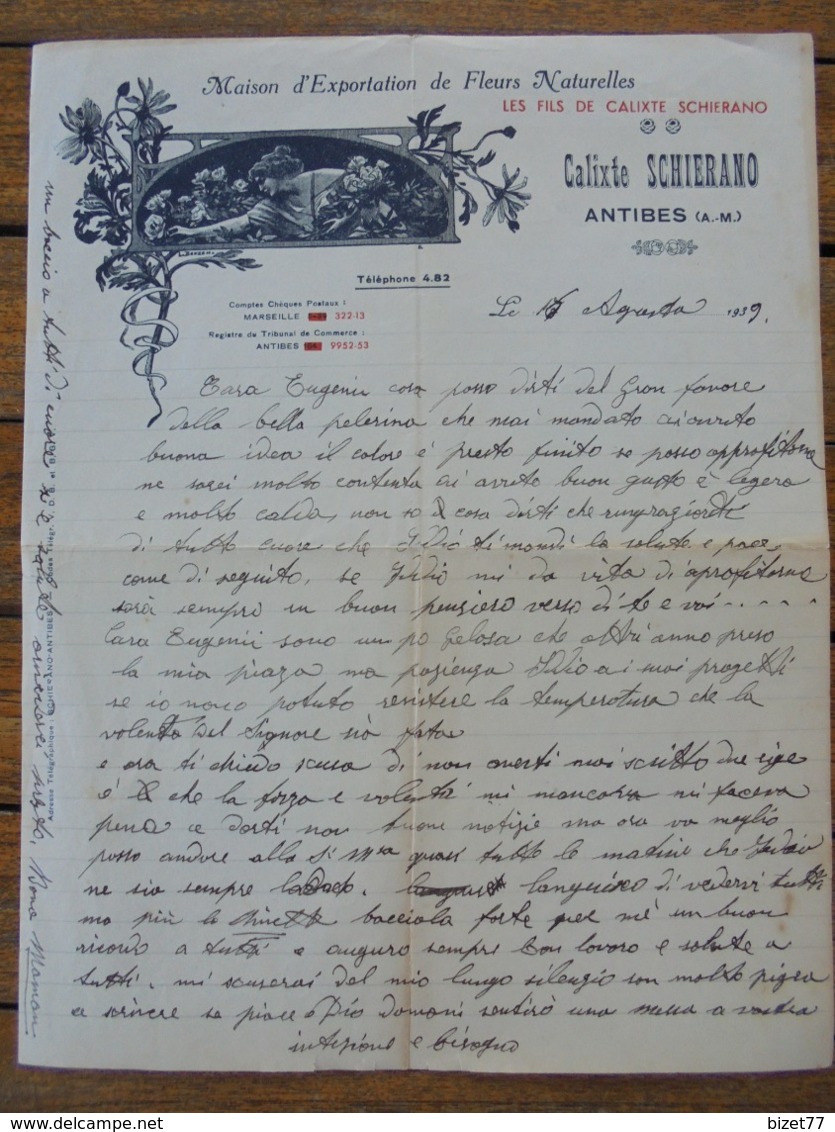 Maison d'Exportation de Fleurs Naturelles
LES FILS DE CALIXTE SCHIERANO
Calixte SCHIERANO
ANTIBES (A.-M.)
Téléphone 4.82
Comptes Chèques Postaux :
MARSEILLE 322-13
Registre du Tribunal de Commerce :
ANTIBES 9952-53
Le 16 Agosto 1939.
Cara Eugenii cosa posso dirti del gron favore
della bella pelerina che mai mondato ai avuto
buona idea il colore é presto finito se posso approfitarne
ne sarei molto contenta ai avuto buon gusto é legera
e molto calda, non so cosa dirti che ringraziarti
di tutto cuore che Idio ti mondi la salute e pace
come di seguito, se Idio mi da vita di aprofitarne
sará sempre un buon pensiero verso di te e voi - . . . .
Cara Eugenii sono un po gelosa che altri anno preso
la mia piaza ma pazienza Idio a i suoi progetti
se io non o potuto resistere la temperatura che la
volonta del Signore sia fata
e ora ti chiedo scusa di non averti mai scritto due rige
é che la forza e volonta' mi moncova mi faceva
pena a darti non buone notizie ma ora va meglio
posso andare alla S. Mssa quasi tutte le matine che Idio
ne sia sempre lodato. languisco di vedervi tutti
ma più la Ninette bacciola forte per mé un buon
ricordo a tutti e auguro sempre bon lavoro e salute a
tutti. mi scuserai del mio lungo silenzio son molto pigra
a scrivere se piace a Dio domani sentirò una messa a vostra
intezione e bisogno
un baccio a tutti di cuore
Bona Maman
Adresse Télégraphique : SCHIERANO-ANTIBES
bizet77